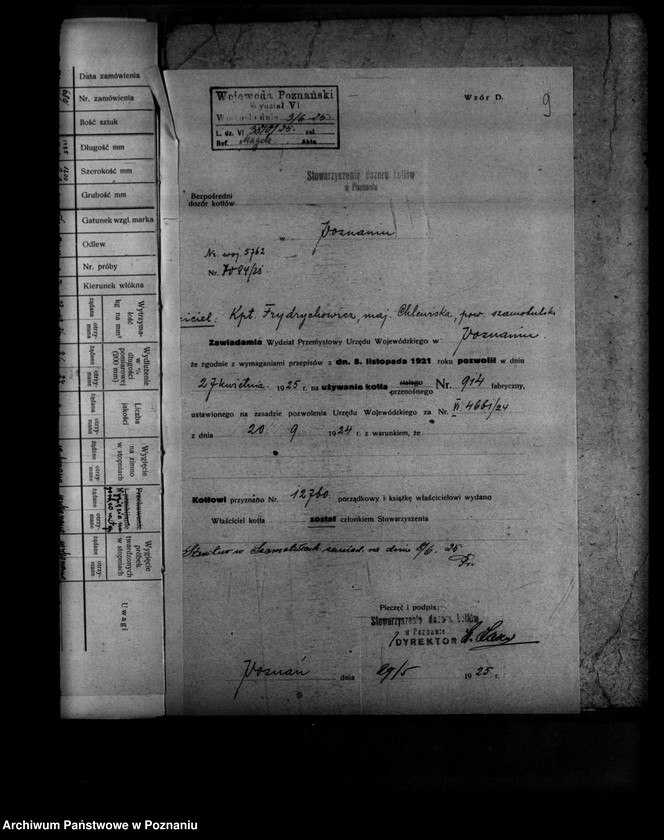 Data zamówienia
Nr. zamówienia
Ilość sztuk
Długość mm
Szerokość mm
Grubość mm
Gatunek wzgl. marka
Odlew
Nr. próby
Kierunek włókna
Wytrzymałość kg na mm²
żądana otrzymane
Wydłużenie w % długości pomiarowej (200 mm)
żądane otrzymane
Liczba jakości
żądana otrzymane
Wygięcie na zimno w stopniach
żądane otrzymane
żądane otrzymane
Wygięcie próbek twardzonych w stopniach
żądane otrzymane
Uwagi
Wojewoda Poznański
Wydział VI
3/6 25
L. dz. VI 3810/25. zał.
Ref. Akta
Wzór D.
9
Stowarzyszenie dozoru kotłów
w Poznaniu
Bezpośredni
dozór kotłów
w Poznaniu
Nr. woj. 5762
Nr. 7084/25
iciel: Kpt. Frydrychowicz, maj. Chlewiska, pow. szamotulski
Zawiadamia Wydział Przemysłowy Urzędu Wojewódzkiego w Poznaniu.
że zgodnie z wymaganiami przepisów z dn. 8. listopada 1921 roku pozwolił w dniu
27 kwietnia 1925 r. na używanie kotła stałego przenośnego Nr. 914 fabryczny,
ustawionego na zasadzie pozwolenia Urzędu Wojewódzkiego za Nr. VI 4661/24
z dnia 20 9 1924 r. z warunkiem, że
Kotłowi przyznano Nr. 12760 porządkowy i książkę właścicielowi wydano
Właściciel kotła został członkiem Stowarzyszenia
w Szamotułach zawiad. na dniu 8/6. 25
Pieczęć i podpis:
Stowarzyszenie dozoru kotłów
w Poznaniu
DYREKTOR
Poznań dnia 29/5 1925 r.
Archiwum Państwowe w Poznaniu